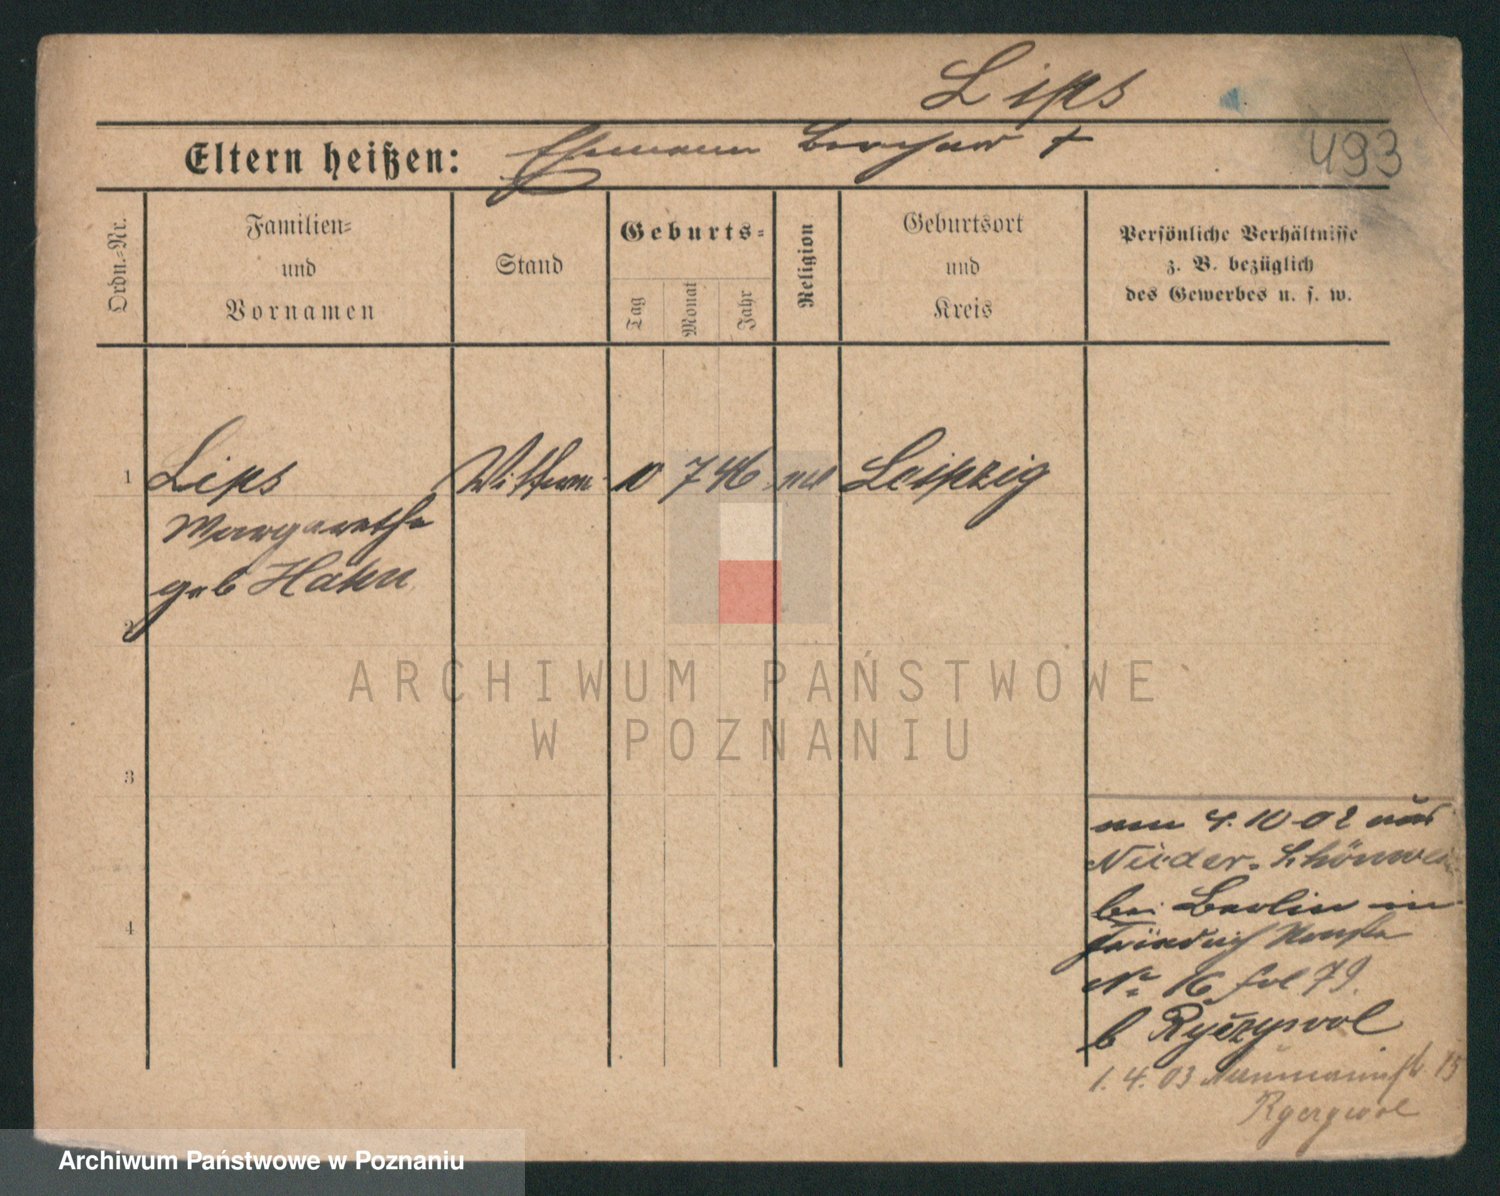 Lips
493
Eltern heißen: Ehemann †
Ordn.=Nr.
Familien=
und
Vornamen
Stand
Geburts=
Tag
Monat
Jahr
Religion
Geburtsort
und
Kreis
Persönliche Verhältnisse
z. B. bezüglich
des Gewerbes u. s. w.
1 Lips Wittwe 10 7 46 Leipzig
Margarethe
geb Hahn
2
ARCHIWUM PAŃSTWOWE
W POZNANIU
3
4. 10 02 aus
Nieder-Schönwei
bei Berlin in
4
No 16 fol 79.
b Ryczywol
1. 4. 03 Naumannstr. 15
Ryczywol
Archiwum Państwowe w Poznaniu